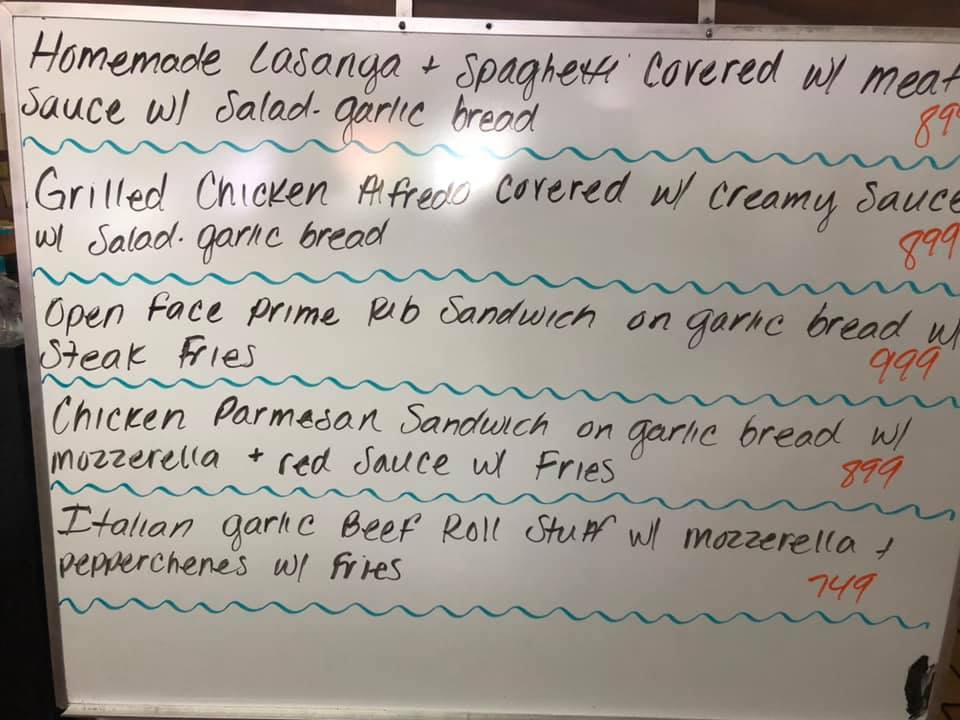 Homemade Lasanga + Spaghetti Covered w/ meat
Sauce w/ Salad - garlic bread
89
Grilled Chicken Alfredo Covered w/ Creamy Sauce
w/ Salad - garlic bread
899
Open Face Prime Rib Sandwich on garlic bread w/
Steak Fries
999
Chicken Parmesan Sandwich on garlic bread w/
mozzerella + red Sauce w/ Fries
899
Italian garlic Beef Roll Stuff w/ mozzerella +
pepperchenes w/ fries
749